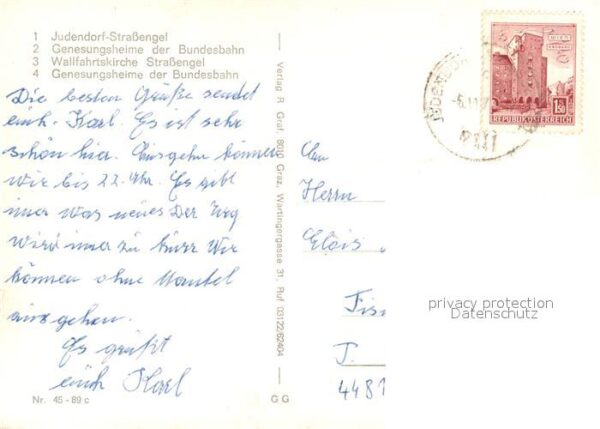 1 Judendorf-Straßengel
2 Genesungsheime der Bundesbahn
3 Wallfahrtskirche Straßengel
4 Genesungsheime der Bundesbahn
Die besten Grüße sendet
euch Karl. Es ist sehr
schön hier. Ausgehn können
wir bis 22 Uhr. Es gibt
imer was neues Der Weg
wird imer zu kurz Wir
können ohne Mantel
ausgehen.
Es grüßt
euch Karl
Nr. 45 - 89 c
Verlag R. Graf, 8010 Graz, Wartingergasse 31, Ruf 03122/62404
G G
WIEN
1.50
REPUBLIK ÖSTERREICH
JUDENDO
An
Herrn
Elois
Fis
J.
4481
privacy protection
Datenschutz